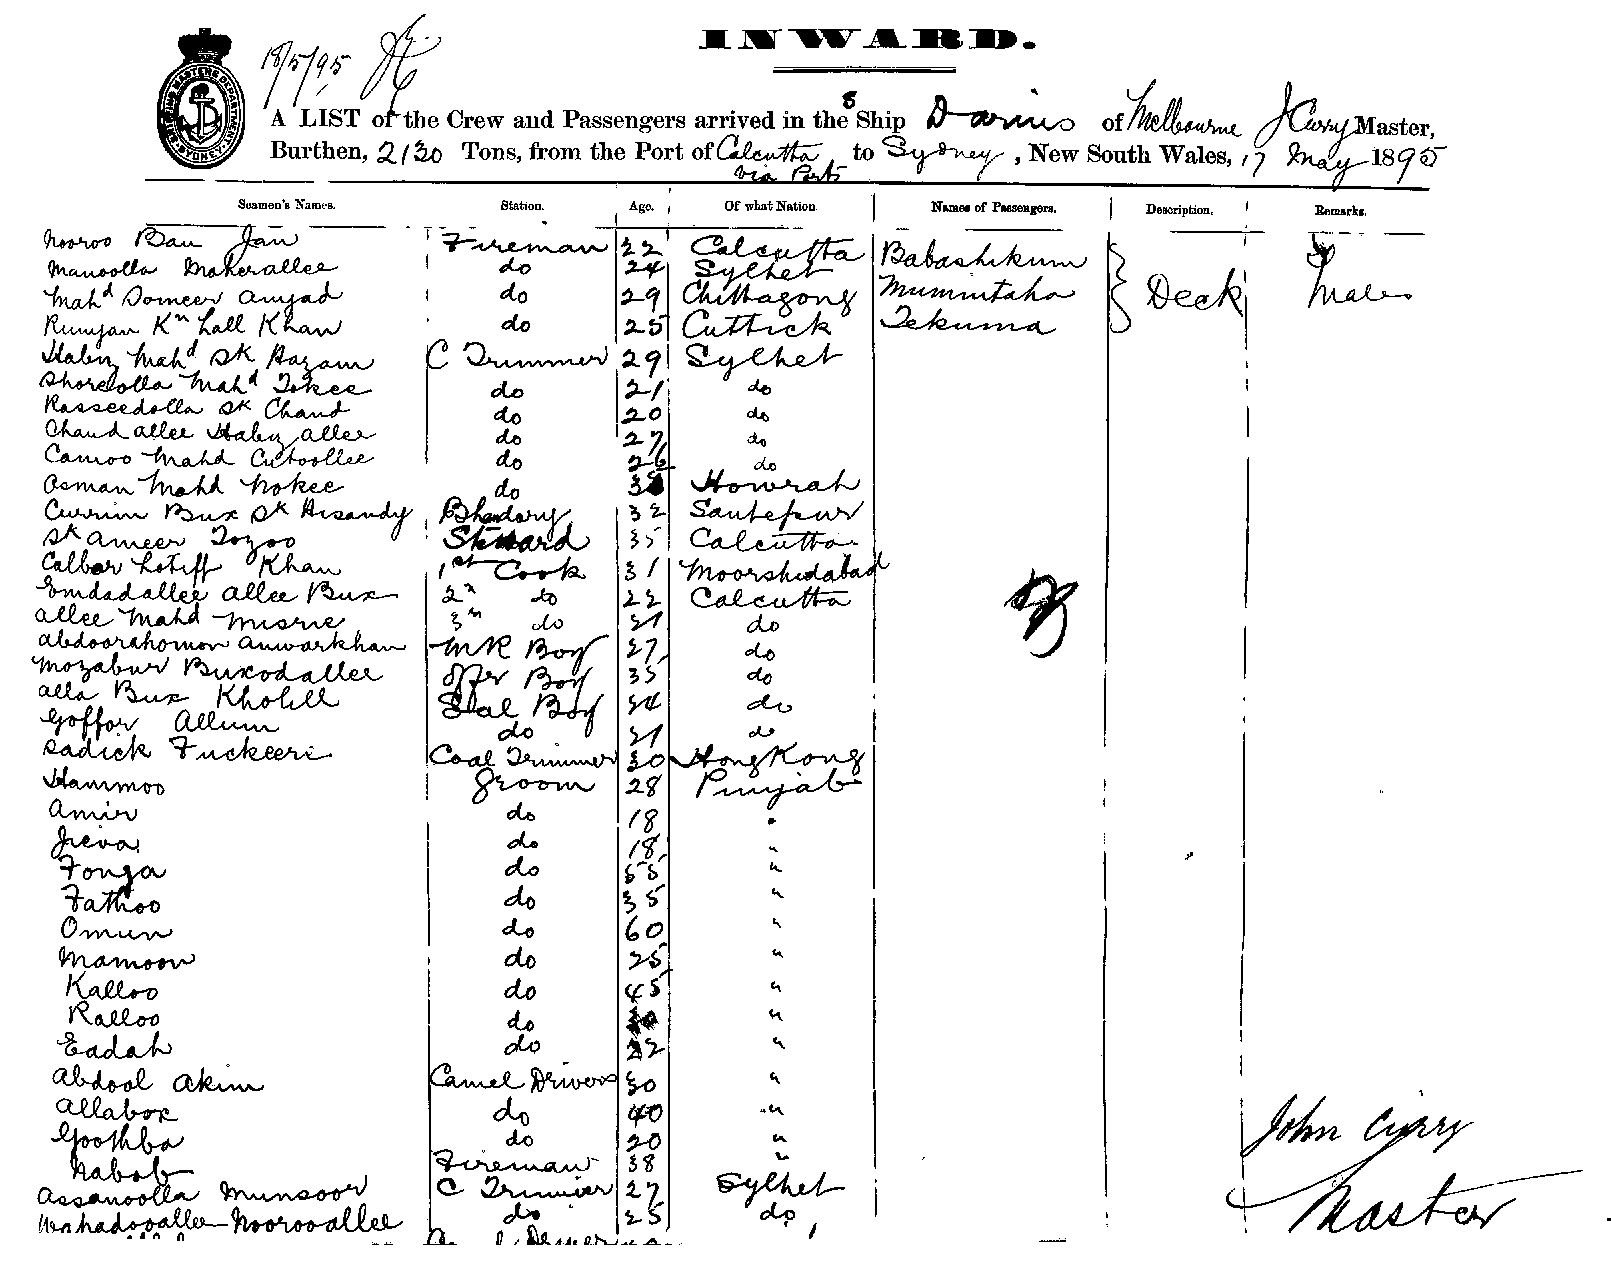 INWARD.
18/5/95
A LIST of the Crew and Passengers arrived in the S Ship Darius of Melbourne J Curry Master,
Burthen, 2130 Tons, from the Port of Calcutta to Sydney, New South Wales, 17 May 1895
via Ports
Seamen's Names. Station. Age. Of what Nation Names of Passengers. Description. Remarks.
Nooroo Bau Jan Fireman 22 Calcutta Babashikum
Manoolla Maherallee do 24 Sylhet
Mahd Domeer Amjad do 29 Chittagong Mumintaha Deck Males
Rumjan Kn Lall Khan do 25 Cuttick Tekuma
Habiz Mahd Sk Aazam C Trimmer 29 Sylhet
Shoreolla Mahd Tokee do 21 do
Rasseedolla Sk Chand do 20 do
Chand allee Habiz allee do 27 do
Camoo Mahd Cutoollee do 26 do
Asman Mahd Nokee do Howrah
Currim Bux Sk Hisandy Bhandary 32 Santepur
Sk Ameer Tozoo Steward 35 Calcutta
Calbar Lotiff Khan 1st Cook 31 Moorshidabad
Emdadallee Allee Bux 2n do 22 Calcutta
Allee Mahd Misrie 3rd do 21 do
Abdoorahomon Anwarkhan MR Boy 27 do
Mozabur Buxodallee Offer Boy 35 do
Alla Bux Kholill Boy 24 do
Goffor Allum do 21 do
Sadick Fuckeeri Coal Trimmer 30 HongKong
Hammoo Groom 28 Punjab
Amir do 18 "
Jieva do 18 "
Fonga do 55 "
Fathoo do 35 "
Omun do 60 "
Mamoon do 25 "
Kalloo do 45 "
Ralloo do 30 "
Eadah do 22 "
Abdool Akim Camel Drivers 30 "
Allabox do 40 "
Goothba do 20 "
Nabob Fireman 38 "
Assanoolla Munsoor C Trimmer 27 Sylhet
Wahadooallee Noorooallee do 25 do
John Curry
Master